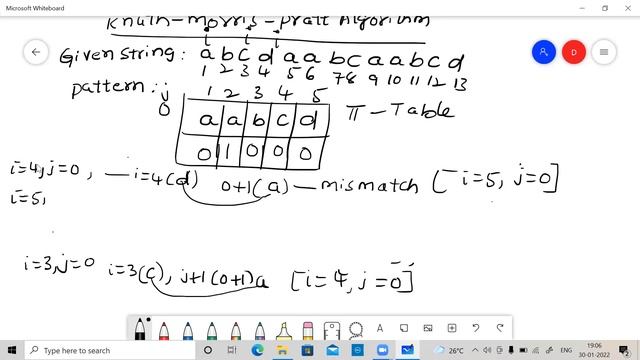 Microsoft Whiteboard
Knuth-Morris-Pratt Algorithm
i i i
Given string: a b c d a a b c a a b c d
1 2 3 4 5 6 7 8 9 10 11 12 13
pattern: j 1 2 3 4 5
0 a a b c d π-Table
0 1 0 0 0
i=4, j=0, — i=4(d) 0+1(a) — mismatch [i=5, j=0]
i=5,
i=3, j=0 i=3(c), j+1(0+1)a [i=4, j=0]
Type here to search
26°C
ENG
19:06
30-01-2022